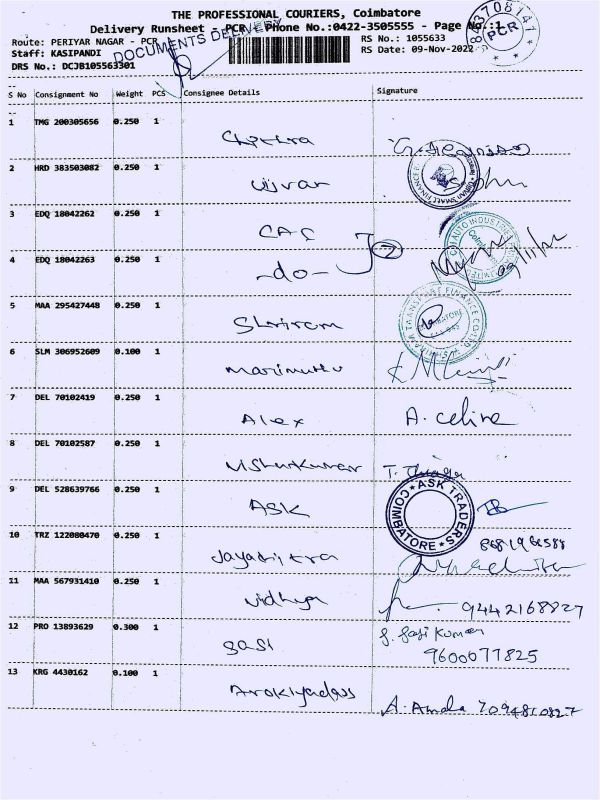 THE PROFESSIONAL COURIERS, Coimbatore
Delivery Runsheet - PCR - Phone No.:0422-3505555 - Page No.:1
Route: PERIYAR NAGAR - PCR RS No.: 1055633
Staff: KASIPANDI RS Date: 09-Nov-2022
DRS No.: DCJB105563301
DOCUMENTS DELIVERY
9843708141
PCR
S No Consignment No Weight PCS Consignee Details Signature
1 TMG 200305656 0.250 1 Chitra
2 HRD 383503082 0.250 1
3 EDQ 18042262 0.250 1
4 EDQ 18042263 0.250 1 -do- 2
5 MAA 295427448 0.250 1 Shriram
6 SLM 306952609 0.100 1 Marimuthu
7 DEL 70102419 0.250 1 Alex A. Celine
8 DEL 70102587 0.250 1
9 DEL 528639766 0.250 1 ASK
ASK TRADERS COIMBATORE
10 TRZ 122080470 0.250 1 Jayachitra
11 MAA 567931410 0.250 1 Vidhya 9442168827
12 PRO 13893629 0.300 1 Sasi S. Sasi Kumar
9600077825
13 KRG 4430162 0.100 1 Arokiyadass A. Amala 7094810827